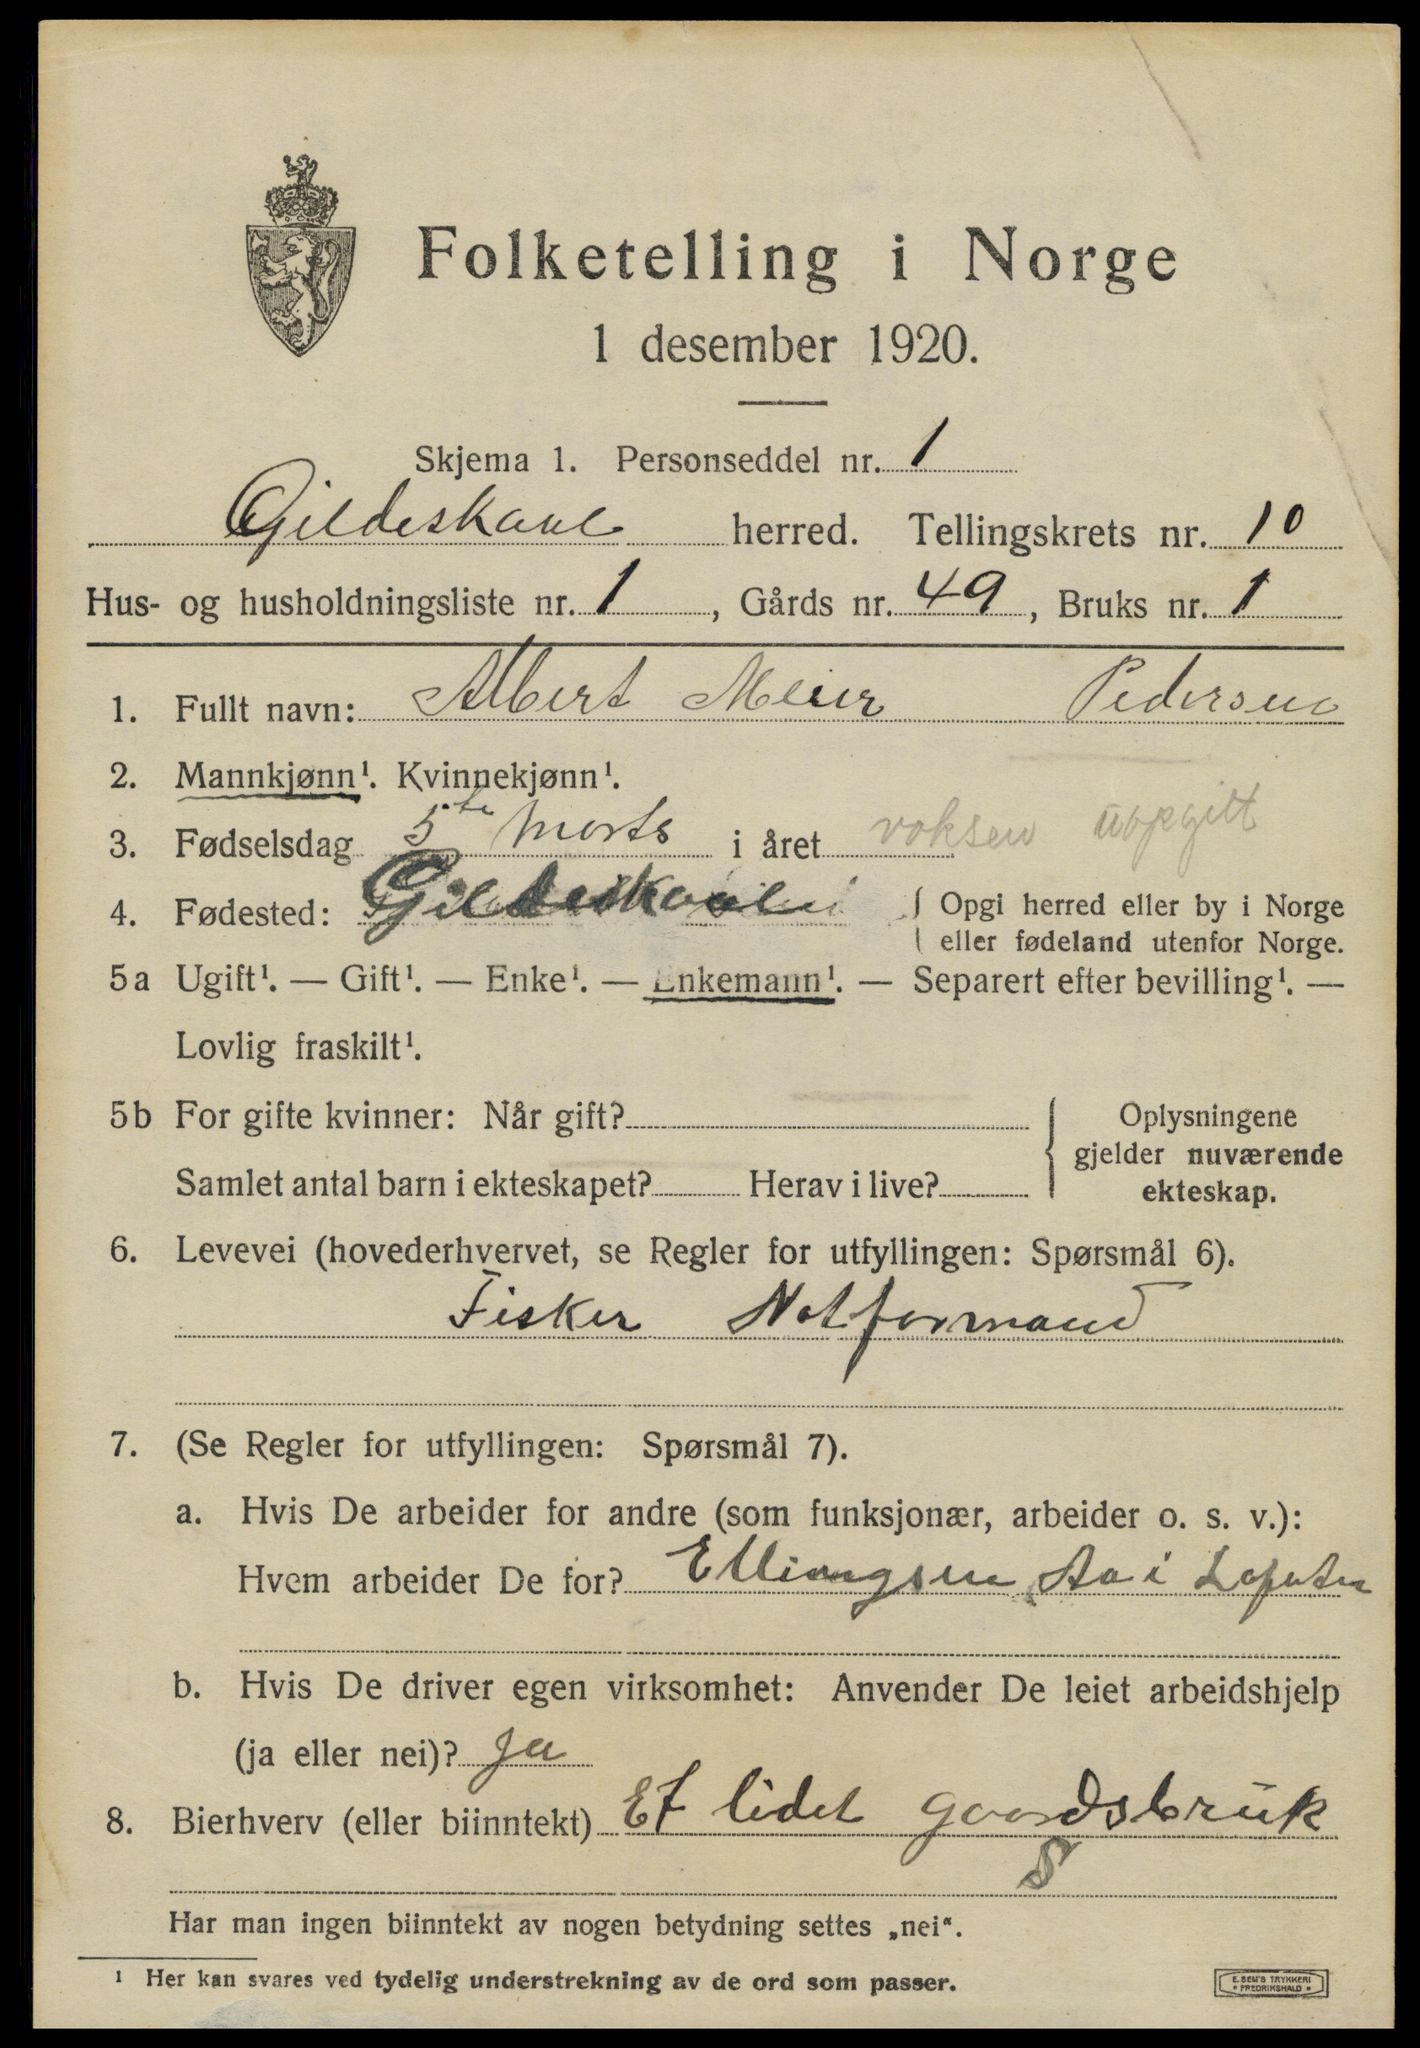 Folketelling i Norge
1 desember 1920.
Skjema 1. Personseddel nr. 1
Gildeskaal herred. Tellingskrets nr. 10
Hus- og husholdningsliste nr. 1, Gårds nr. 49, Bruks nr. 1
1. Fullt navn: Albert Meier Pedersen
2. Mannkjønn¹. Kvinnekjønn¹.
3. Fødselsdag 5te Marts i året voksen uopgitt
4. Fødested: Gildeskaal { Opgi herred eller by i Norge
eller fødeland utenfor Norge.
5a Ugift¹. — Gift¹. — Enke¹. — Enkemann¹. — Separert efter bevilling¹. —
Lovlig fraskilt¹.
5b For gifte kvinner: Når gift? { Oplysningene
gjelder nuværende
Samlet antal barn i ekteskapet? Herav i live? ekteskap.
6. Levevei (hovederhvervet, se Regler for utfyllingen: Spørsmål 6).
Fisker Notformand
7. (Se Regler for utfyllingen: Spørsmål 7).
a. Hvis De arbeider for andre (som funksjonær, arbeider o. s. v.):
Hvem arbeider De for? Ellingsen Aa i Lofoten
b. Hvis De driver egen virksomhet: Anvender De leiet arbeidshjelp
(ja eller nei)? ja
8. Bierhverv (eller biinntekt) Et lidet gaardsbruk
S
Har man ingen biinntekt av nogen betydning settes „nei“.
¹ Her kan svares ved tydelig understrekning av de ord som passer.
E. SEM'S TRYKKERI
• FREDRIKSHALD •